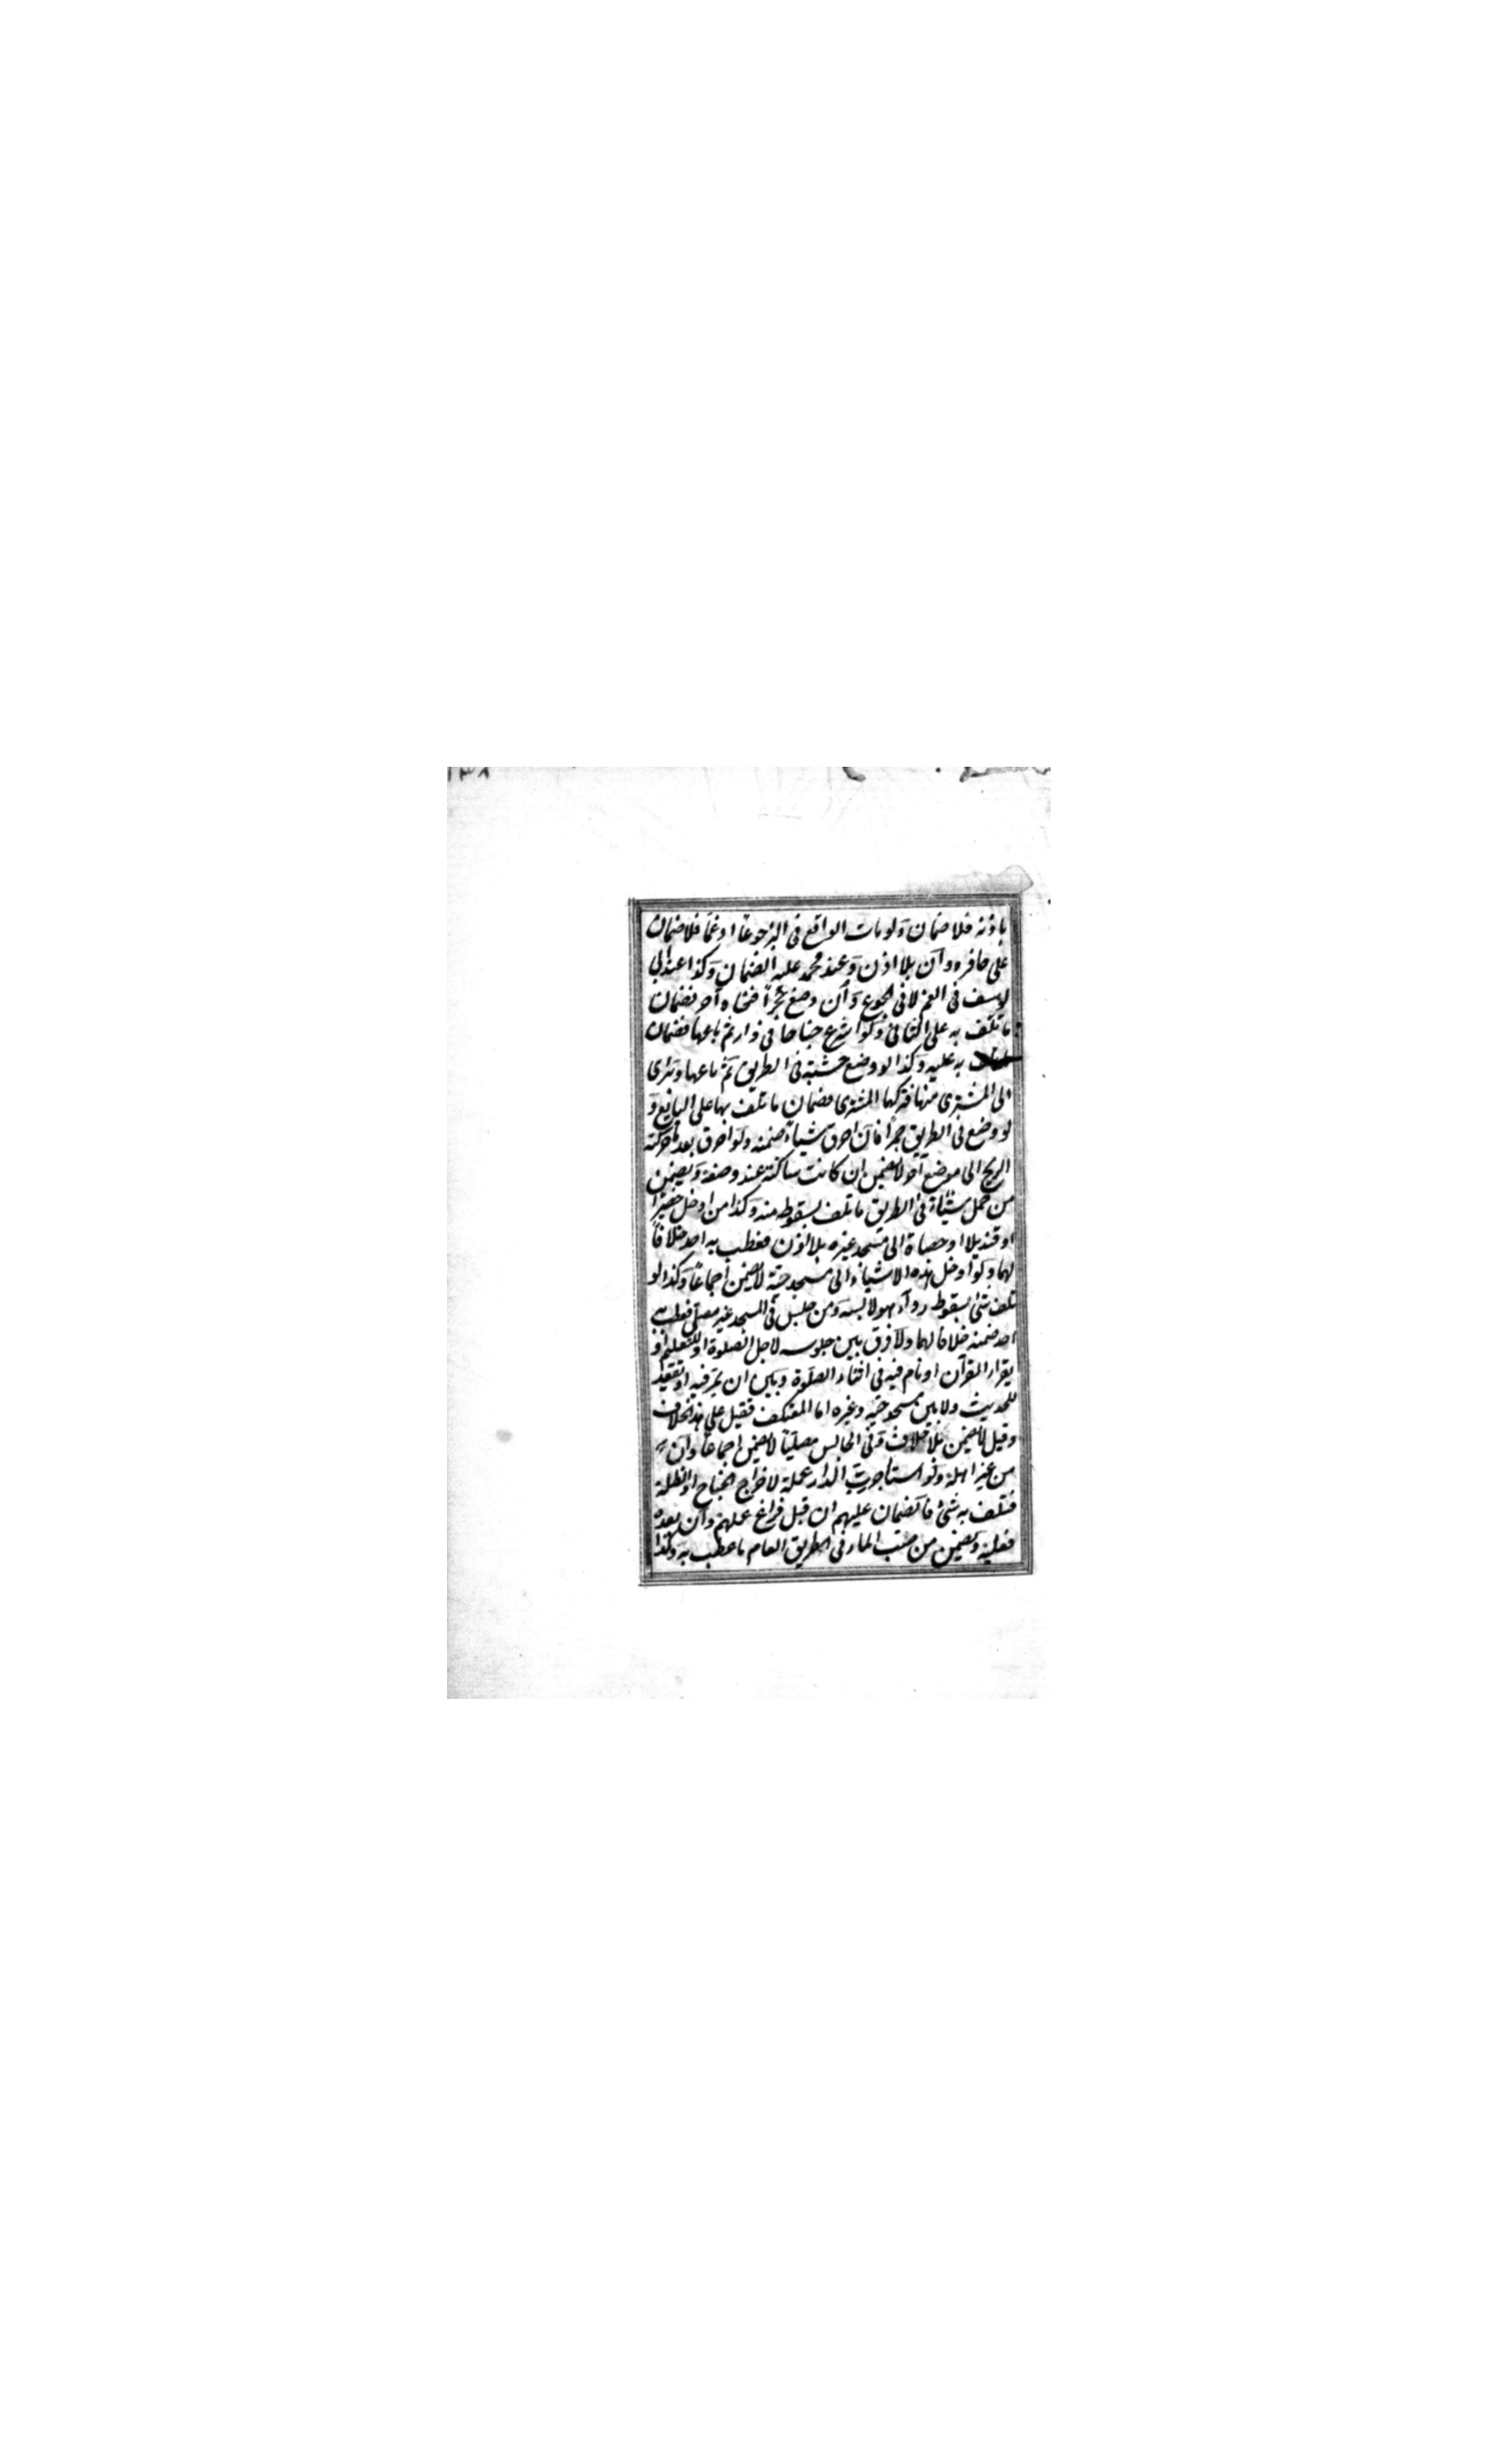 ١٣٨
باذنه فلا ضمان ولو مات الواقع في البئر جوعا او غما فلا ضمان
على حافره وان بلا اذن وعند محمد عليه الضمان وكذا عند ابي
يوسف في الغم لا في الجوع وان وضع حجرا فنحاه آخر فضمان
ما تلف به على الثاني ولو اشرع جناحا في دار ثم باعها فضمان
ما تلف به عليه وكذا لو وضع خشبة في الطريق ثم باعها وبرئ
الى المشتري منها فتركها المشتري فضمان ما تلف بها على البائع و
لو وضع في الطريق جمرا فان احرق شياء ضمنه ولو احرق بعد ما حركته
الريح الى موضع آخر لا يضمن ان كانت ساكنة عند وضعه ويضمن
من حمل شيئا في الطريق ما تلف بسقوطه منه وكذا من ادخل حصيرا
او قنديلا او حصاة الى مسجد غيره بلا اذن فعطب به احد خلافا
لهما ولو ادخل هذه الاشياء الى مسجد حيه لا يضمن اجماعا وكذا لو
تلف شئ بسقوط رداء هو لابسه ومن جلس في المسجد غير مصلّ فعطب به
احد ضمنه خلافا لهما ولا فرق بين جلوسه لاجل الصلوة او للتعليم او
يقراء القرآن او نام فيه في اثناء الصلوة وبين ان يمر فيه او يقعد
للحديث ولا بين مسجد حيه وغيره اما المعتكف فقيل على هذا الخلاف
وقيل لا يضمن بلا خلاف وفي الجالس مصليا لا يضمن اجماعا وان
من غير اهله ولو استاجر رب الدار عملة لاخراج الجناح او الظلة
فتلف به شئ فالضمان عليهم ان قبل فراغ عملهم وان بعده
فعليه ويضمن من صب الماء في الطريق العام ما عطب به وكذا